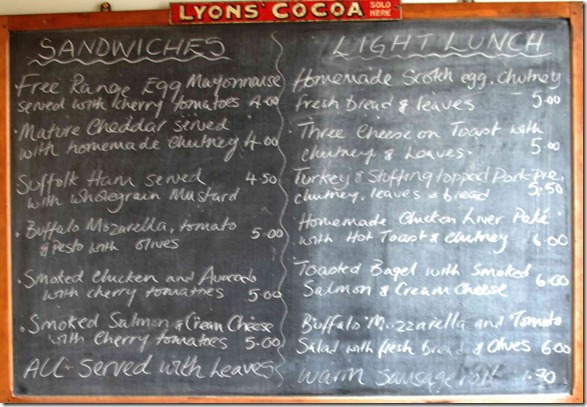 LYONS' COCOA SOLD HERE
SANDWICHES
Free Range Egg Mayonnaise
served with cherry tomatoes 4.00
Mature Cheddar served
with homemade chutney 4.00
Suffolk Ham served 4.50
with wholegrain Mustard
Buffalo Mozarella, tomato
& Pesto with olives 5.00
Smoked Chicken and Avocado
with cherry tomatoes 5.00
Smoked Salmon & Cream Cheese
with Cherry tomatoes 5.00
All Served with Leaves
LIGHT LUNCH
Homemade Scotch egg, chutney
fresh bread & leaves 5.00
Three Cheese on Toast with
chutney & Leaves. 5.00
Turkey & Stuffing topped Pork Pie,
chutney, leaves & bread 5.50
Homemade Chicken Liver Pate
with Hot Toast & Chutney 6.00
Toasted Bagel with Smoked
Salmon & Cream Cheese 6.00
Buffalo Mozzarella and Tomato
Salad with fresh bread & Olives 6.00
Warm Sausage roll